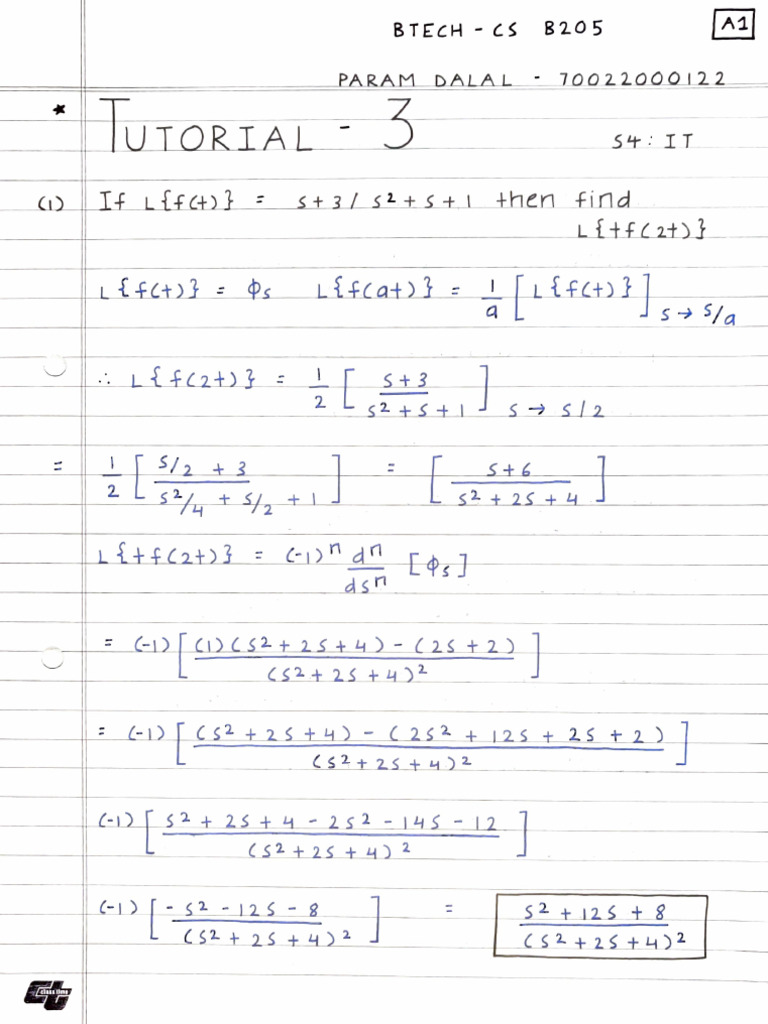 BTECH - CS B205 A1
PARAM DALAL - 70022000122
* TUTORIAL - 3 S4: IT
(1) If L{f(t)} = s+3 / s²+s+1 then find
L{tf(2t)}
L{f(t)} = Φs L{f(at)} = 1/a [L{f(t)}] s→s/a
∴ L{f(2t)} = 1/2 [s+3 / s²+s+1] s→s/2
= 1/2 [s/2 + 3 / s²/4 + s/2 + 1] = [s+6 / s²+2s+4]
L{tf(2t)} = (-1)ⁿ dⁿ/dsⁿ [Φs]
= (-1) [(1)(s²+2s+4) - (2s+2) / (s²+2s+4)²]
= (-1) [(s²+2s+4) - (2s² + 12s + 2s + 2) / (s²+2s+4)²]
(-1) [s² + 2s + 4 - 2s² - 14s - 12 / (s²+2s+4)²]
(-1) [-s² - 12s - 8 / (s²+2s+4)²] = s² + 12s + 8 / (s²+2s+4)²
classtime